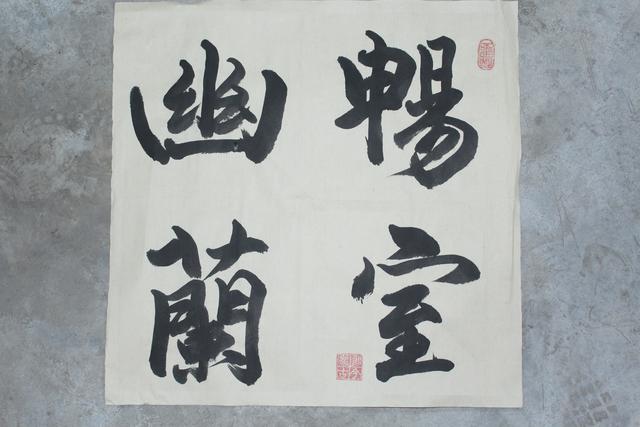 暢室
幽蘭